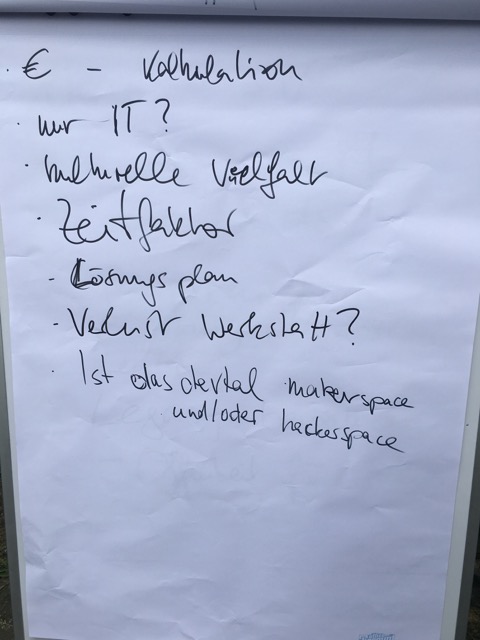 · € - Kalkulation
· nur IT?
· kulturelle Vielfalt
· Zeitfaktor
- Lösungsplan
- Verlust Werkstatt?
· Ist das dezentral makerspace
und/oder hackerspace